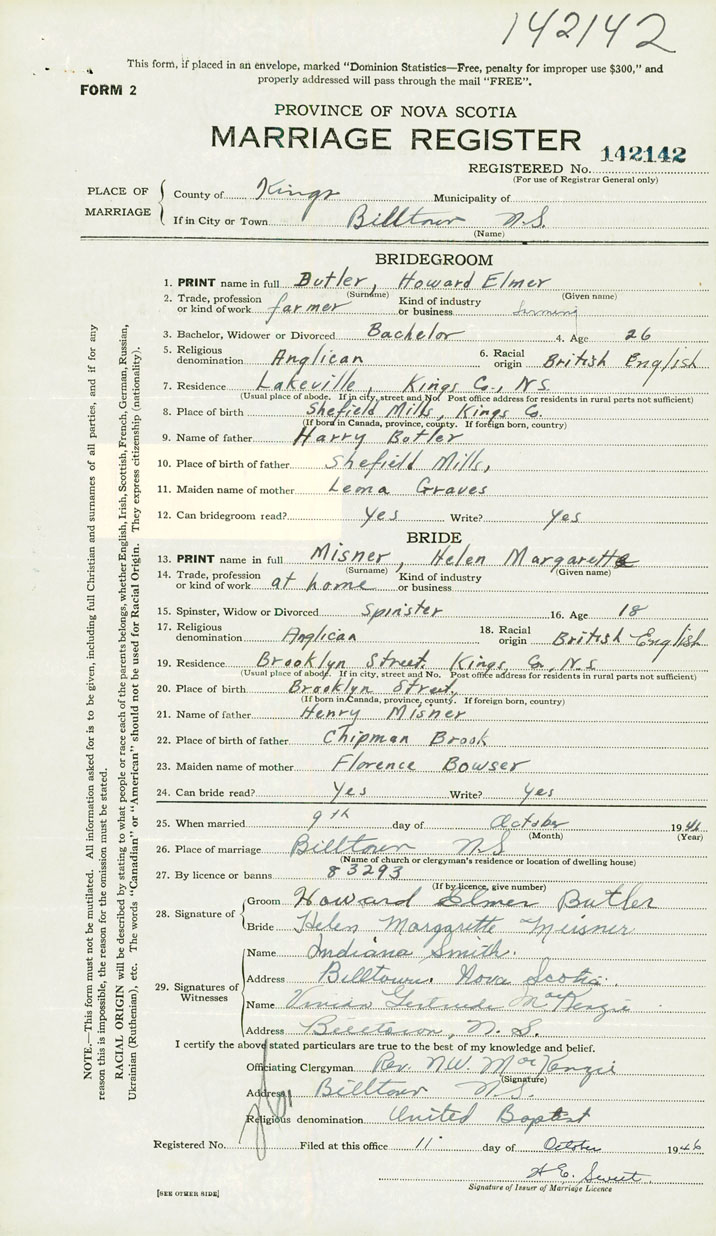 142142
This form, if placed in an envelope, marked "Dominion Statistics—Free, penalty for improper use $300," and
properly addressed will pass through the mail "FREE".
FORM 2
PROVINCE OF NOVA SCOTIA
MARRIAGE REGISTER
142142
REGISTERED No.
(For use of Registrar General only)
PLACE OF MARRIAGE
County of Kings Municipality of
If in City or Town Billtown N.S.
(Name)
BRIDEGROOM
1. PRINT name in full Butler, Howard Elmer
(Surname) (Given name)
2. Trade, profession or kind of work farmer Kind of industry or business farming
3. Bachelor, Widower or Divorced Bachelor 4. Age 26
5. Religious denomination Anglican 6. Racial origin British English
7. Residence Lakeville, Kings Co., N.S.
(Usual place of abode. If in city, street and No. Post office address for residents in rural parts not sufficient)
8. Place of birth Shefield Mills, Kings Co.
(If born in Canada, province, county. If foreign born, country)
9. Name of father Harry Butler
10. Place of birth of father Shefield Mills,
11. Maiden name of mother Leona Graves
12. Can bridegroom read? Yes Write? Yes
BRIDE
13. PRINT name in full Misner, Helen Margarette
(Surname) (Given name)
14. Trade, profession or kind of work at home Kind of industry or business
15. Spinster, Widow or Divorced Spinster 16. Age 18
17. Religious denomination Anglican 18. Racial origin British English
19. Residence Brooklyn Street, Kings, Co., N.S.
(Usual place of abode. If in city, street and No. Post office address for residents in rural parts not sufficient)
20. Place of birth Brooklyn Street,
(If born in Canada, province, county. If foreign born, country)
21. Name of father Henry Misner
22. Place of birth of father Chipman Brook
23. Maiden name of mother Florence Bowser
24. Can bride read? Yes Write? Yes
25. When married 9th day of October 1946
(Month) (Year)
26. Place of marriage Billtown N.S.
(Name of church or clergyman's residence or location of dwelling house)
27. By licence or banns 83293
(If by licence, give number)
28. Signature of
Groom Howard Elmer Butler
Bride Helen Margarette Meisner
29. Signatures of Witnesses
Name Indiana Smith.
Address Billtown. Nova Scotia.
Name Gertrude MacKenzie
Address Billtown, N. S.
I certify the above stated particulars are true to the best of my knowledge and belief.
Officiating Clergyman Rev. N.W. MacKenzie
(Signature)
Address Billtown N.S.
Religious denomination United Baptist
Registered No. Filed at this office 11 day of October 1946
Signature of Issuer of Marriage Licence
[SEE OTHER SIDE]
NOTE.—This form must not be mutilated. All information asked for is to be given, including full Christian and surnames of all parties, and if for any
reason this is impossible, the reason for the omission must be stated.
RACIAL ORIGIN will be described by stating to what people or race each of the parents belongs, whether English, Irish, Scottish, French, German, Russian,
Ukrainian (Ruthenian), etc. The words "Canadian" or "American" should not be used for Racial Origin. They express citizenship (nationality).